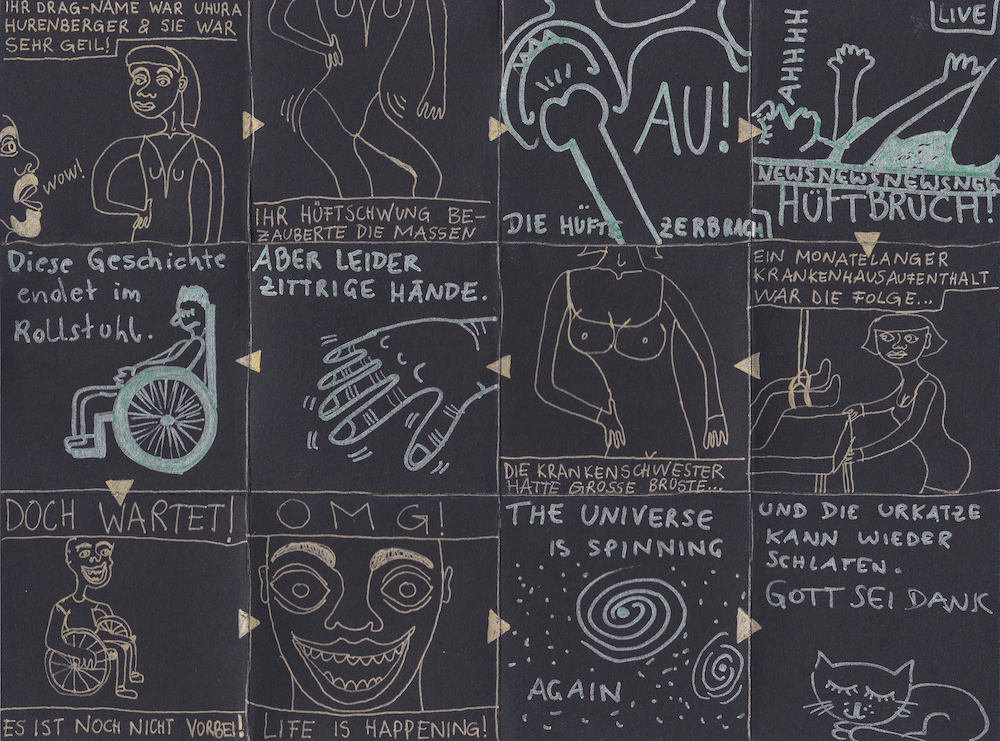 IHR DRAG-NAME WAR UHURA
HURENBERGER & SIE WAR
SEHR GEIL!
WOW!
IHR HÜFTSCHWUNG BE-
ZAUBERTE DIE MASSEN
AU!
DIE HÜFTE ZERBRACH
LIVE
AHHHH
NEWSNEWSNEWSNEW
HÜFTBRUCH!
EIN MONATELANGER
KRANKENHAUSAUFENTHALT
WAR DIE FOLGE...
DIE KRANKENSCHWESTER
HATTE GROSSE BRÜSTE...
ABER LEIDER
ZITTRIGE HÄNDE.
Diese Geschichte
endet im
Rollstuhl.
DOCH WARTET!
ES IST NOCH NICHT VORBEI!
OMG!
LIFE IS HAPPENING!
THE UNIVERSE
IS SPINNING
AGAIN
UND DIE URKATZE
KANN WIEDER
SCHLAFEN.
GOTT SEI DANK